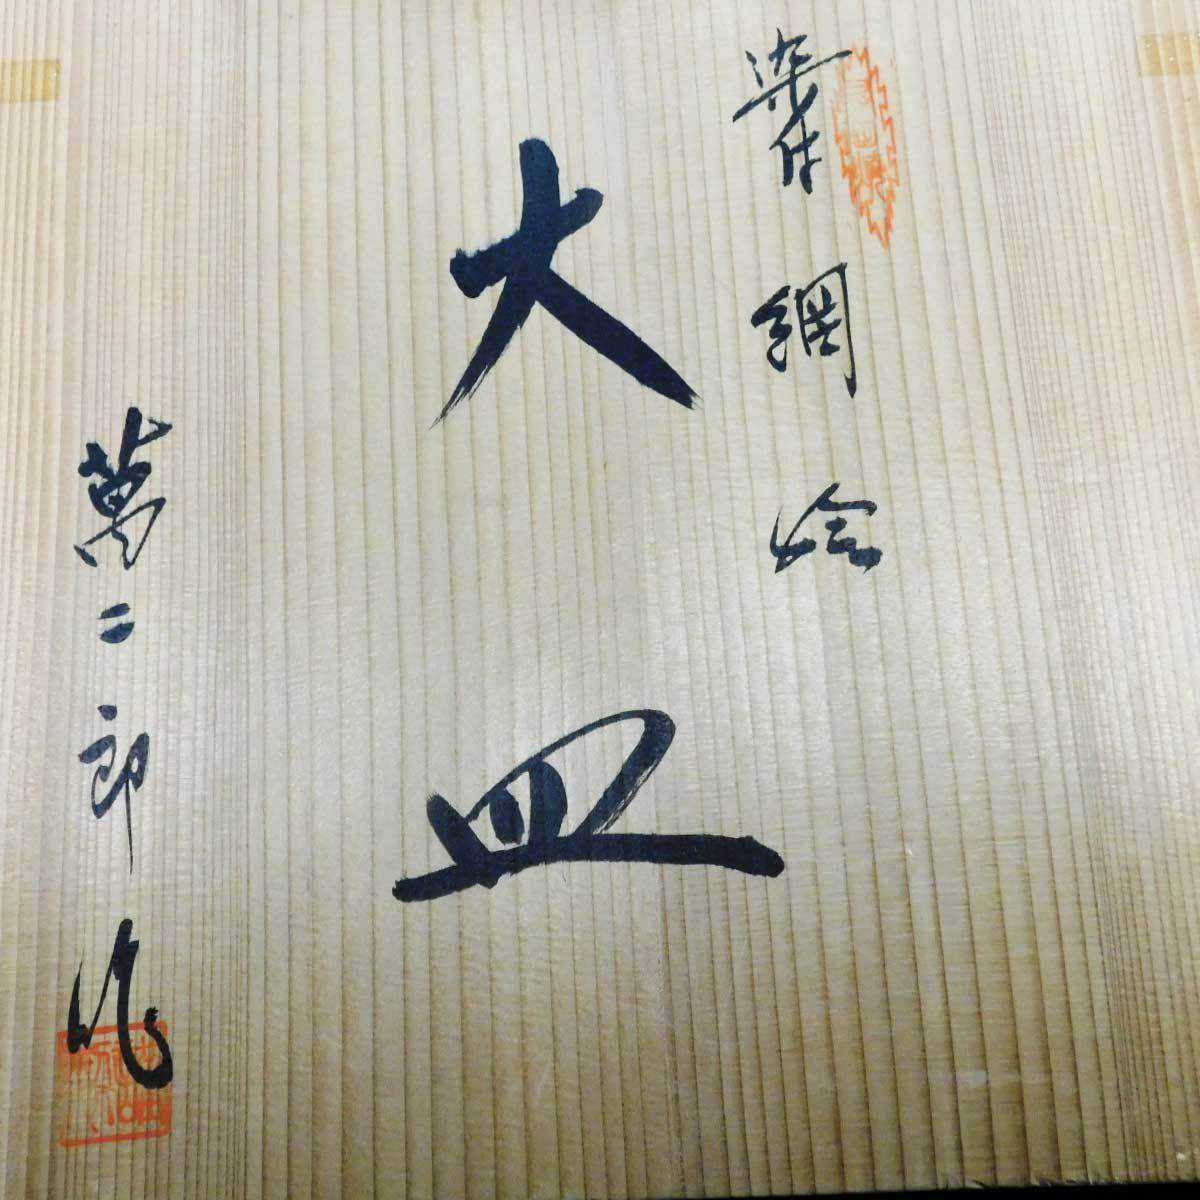 染付 網絵
大皿
萬二郎作